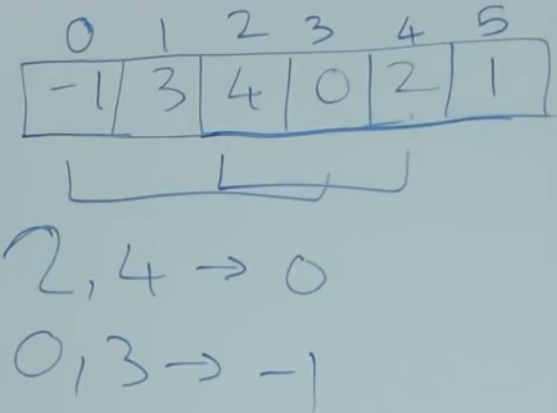 0 1 2 3 4 5
-1 3 4 0 2 1
2,4 → 0
0,3 → -1